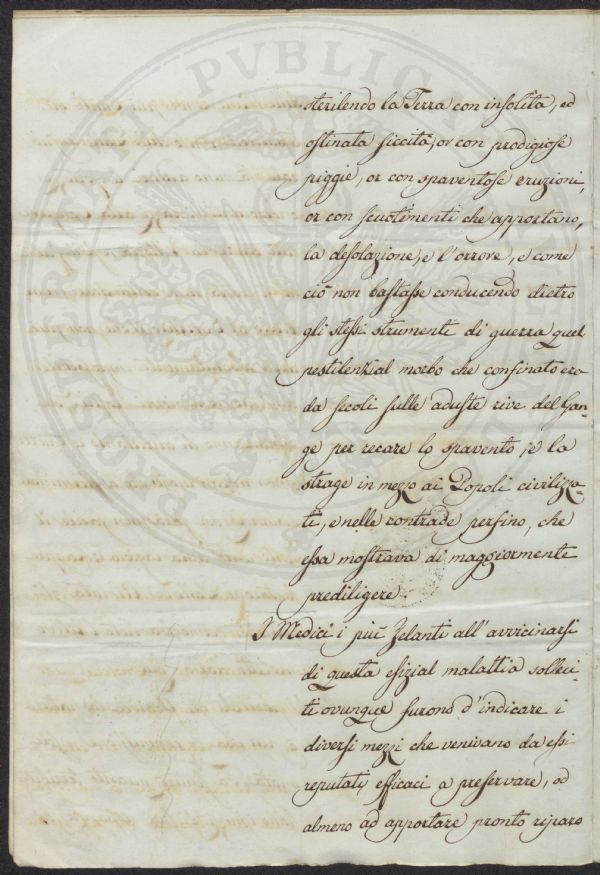 sterilendo la Terra con insolita, ed
ostinata siccità, or con prodigiose
pioggie, or con spaventose eruzioni,
or con scuotimenti che apportano,
la desolazione, e l'orrore, e come
ciò non bastasse conducendo dietro
gli stessi strumenti di guerra quel
pestilenzial morbo che confinato era
da secoli sulle aduste rive del Gan-
ge per recare lo spavento, e la
strage in mezzo ai Popoli civilizza-
ti, e nelle contrade perfino, che
essa mostrava di maggiormente
prediligere.
I Medici i più Zelanti all'avvicinarsi
di questa esizial malattia solleci-
ti ovunque furono d'indicare i
diversi mezzi che venivano da essi
reputati efficaci a preservare, od
almeno ad apportare pronto riparo